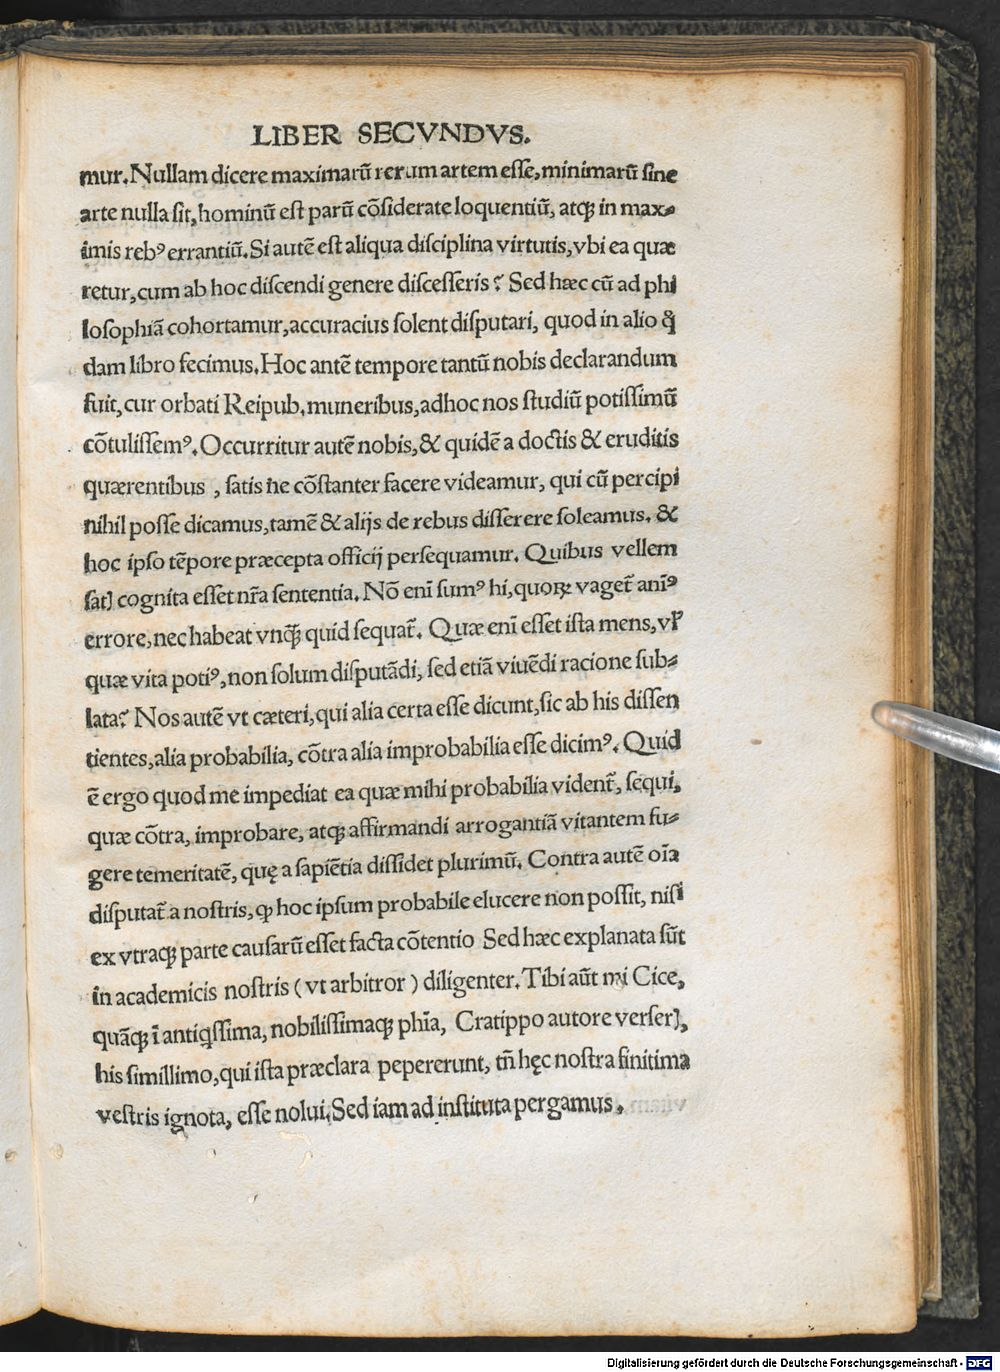 LIBER SECVNDVS.
mur. Nullam dicere maximarũ rerum artem eſſe, minimarũ ſine
arte nulla ſit, hominũ eſt parũ cõſiderate loquentiũ, atqꝫ in max⸗
imis rebꝰ errantiũ. Si autẽ eſt aliqua diſciplina virtutis, vbi ea quæ
retur, cum ab hoc diſcendi genere diſceſſeris? Sed hæc cũ ad phi
loſophiã cohortamur, accuracius ſolent diſputari, quod in alio q̃
dam libro fecimus. Hoc antẽ tempore tantũ nobis declarandum
fuit, cur orbati Reipub. muneribus, adhoc nos ſtudiũ potiſſimũ
cõtuliſſemꝰ. Occurritur autẽ nobis, & quidẽ a doctis & eruditis
quærentibus , ſatis ne cõſtanter facere videamur, qui cũ percipi
nihil poſſe dicamus, tamẽ & alijs de rebus diſſerere ſoleamus. &
hoc ipſo tẽpore præcepta officij perſequamur. Quibus vellem
ſatꝭ cognita eſſet nr̃a ſententia. Nõ enĩ ſumꝰ hi, quoꝝ vaget̃ anĩꝰ
errore, nec habeat vnqꝫ̃ quid ſequat̃. Quæ enĩ eſſet iſta mens, vl̓
quæ vita potiꝰ, non ſolum diſputãdi, ſed etiã viuẽdi racione ſub⸗
lata? Nos autẽ vt cæteri, qui alia certa eſſe dicunt, ſic ab his diſſen
tientes, alia probabilia, cõtra alia improbabilia eſſe dicimꝰ. Quid
ẽ ergo quod me impediat ea quæ mihi probabilia vident̃, ſequi,
quæ cõtra, improbare, atqꝫ affirmandi arrogantiã vitantem fu⸗
gere temeritatẽ, quę a ſapiẽtia diſſidet plurimũ. Contra autẽ oĩa
diſputat̃ a noſtris, ꝙ hoc ipſum probabile elucere non poſſit, niſi
ex vtraqꝫ parte cauſarũ eſſet facta cõtentio Sed hæc explanata ſũt
in academicis noſtris ( vt arbitror ) diligenter. Tibi aũt mi Cice,
quãqꝫ ĩ antiq̃ſſima, nobiliſſimaqꝫ phĩa, Cratippo autore verſerꝭ,
his ſimillimo, qui iſta præclara pepererunt, tñ hęc noſtra finitima
veſtris ignota, eſſe nolui. Sed iam ad inſtituta pergamus.
Digitalisierung gefördert durch die Deutsche Forschungsgemeinschaft - DFG